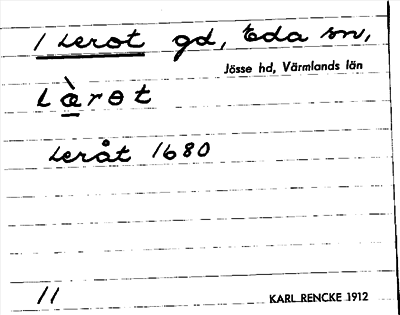 1 Lerot gd, Eda sn,
Jösse hd, Värmlands län
L æ̀ r ɵ t
Leråt 1680
11
KARL RENCKE 1912